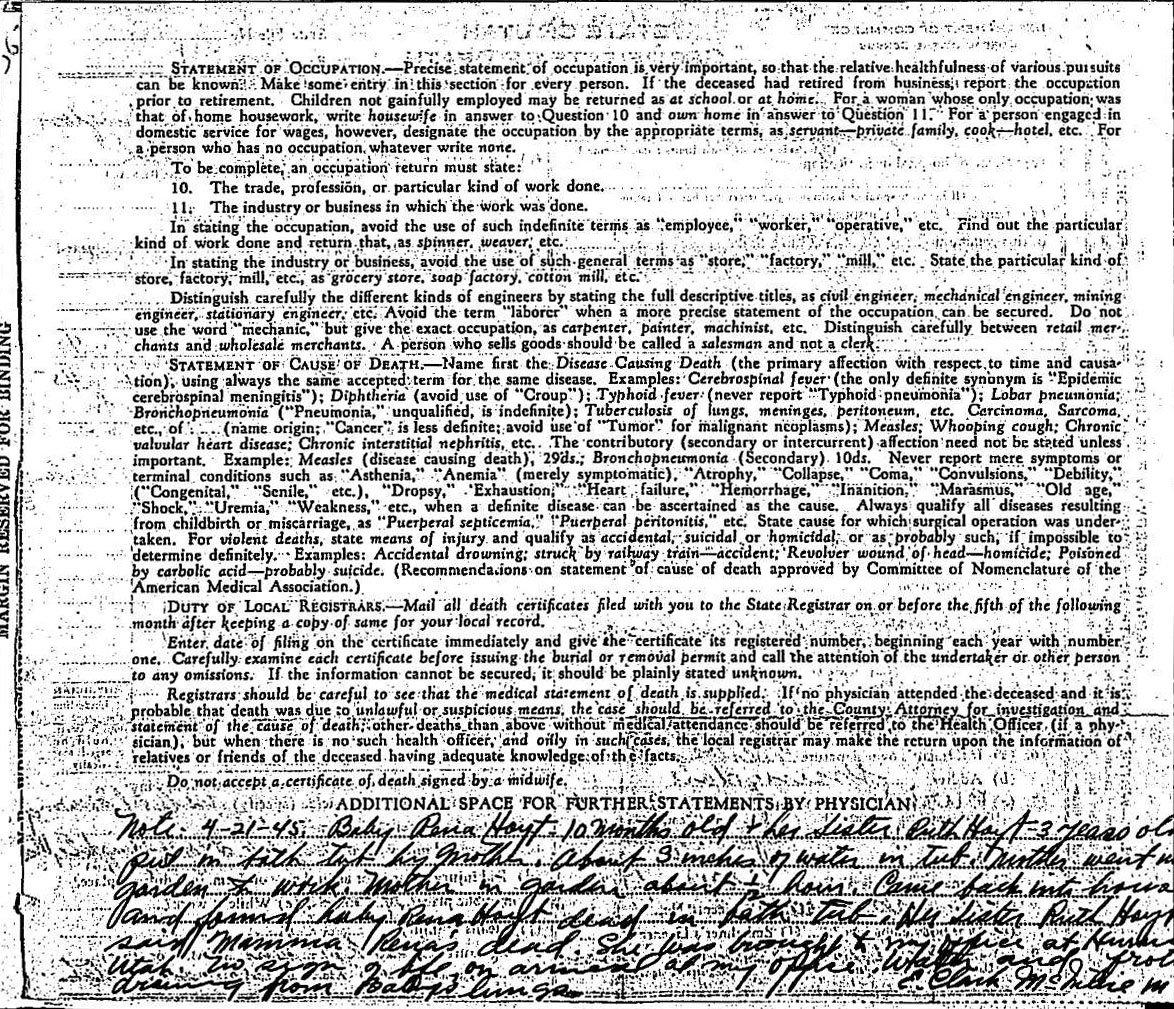 STATEMENT OF OCCUPATION.—Precise statement of occupation is very important, so that the relative healthfulness of various pursuits
can be known. Make some entry in this section for every person. If the deceased had retired from business, report the occupation
prior to retirement. Children not gainfully employed may be returned as at school or at home. For a woman whose only occupation was
that of home housework, write housewife in answer to Question 10 and own home in answer to Question 11. For a person engaged in
domestic service for wages, however, designate the occupation by the appropriate terms, as servant—private family, cook—hotel, etc. For
a person who has no occupation whatever write none.
To be complete, an occupation return must state:
10. The trade, profession, or particular kind of work done.
11. The industry or business in which the work was done.
In stating the occupation, avoid the use of such indefinite terms as "employee," "worker," "operative," etc. Find out the particular
kind of work done and return that, as spinner, weaver, etc.
In stating the industry or business, avoid the use of such general terms as "store," "factory," "mill," etc. State the particular kind of
store, factory, mill, etc., as grocery store, soap factory, cotton mill, etc.
Distinguish carefully the different kinds of engineers by stating the full descriptive titles, as civil engineer, mechanical engineer, mining
engineer, stationary engineer, etc. Avoid the term "laborer" when a more precise statement of the occupation can be secured. Do not
use the word "mechanic," but give the exact occupation, as carpenter, painter, machinist, etc. Distinguish carefully between retail mer-
chants and wholesale merchants. A person who sells goods should be called a salesman and not a clerk.
STATEMENT OF CAUSE OF DEATH.—Name first the Disease Causing Death (the primary affection with respect to time and causa-
tion), using always the same accepted term for the same disease. Examples: Cerebrospinal fever (the only definite synonym is "Epidemic
cerebrospinal meningitis"); Diphtheria (avoid use of "Croup"); Typhoid fever (never report "Typhoid pneumonia"); Lobar pneumonia;
Bronchopneumonia ("Pneumonia," unqualified, is indefinite); Tuberculosis of lungs, meninges, peritoneum, etc. Carcinoma, Sarcoma,
etc., of .... (name origin; "Cancer" is less definite; avoid use of "Tumor" for malignant neoplasms); Measles; Whooping cough; Chronic
valvular heart disease; Chronic interstitial nephritis, etc. The contributory (secondary or intercurrent) affection need not be stated unless
important. Example: Measles (disease causing death), 29ds.; Bronchopneumonia (Secondary) 10ds. Never report mere symptoms or
terminal conditions such as "Asthenia," "Anemia" (merely symptomatic), "Atrophy," "Collapse," "Coma," "Convulsions," "Debility,"
("Congenital," "Senile," etc.), "Dropsy," "Exhaustion," "Heart failure," "Hemorrhage," "Inanition," "Marasmus," "Old age,"
"Shock," "Uremia," "Weakness," etc., when a definite disease can be ascertained as the cause. Always qualify all diseases resulting
from childbirth or miscarriage, as "Puerperal septicemia," "Puerperal peritonitis," etc. State cause for which surgical operation was under-
taken. For violent deaths, state means of injury and qualify as accidental, suicidal or homicidal, or as probably such, if impossible to
determine definitely. Examples: Accidental drowning; struck by railway train—accident; Revolver wound of head—homicide; Poisoned
by carbolic acid—probably suicide. (Recommendations on statement of cause of death approved by Committee of Nomenclature of the
American Medical Association.)
DUTY OF LOCAL REGISTRARS.—Mail all death certificates filed with you to the State Registrar on or before the fifth of the following
month after keeping a copy of same for your local record.
Enter date of filing on the certificate immediately and give the certificate its registered number, beginning each year with number
one. Carefully examine each certificate before issuing the burial or removal permit and call the attention of the undertaker or other person
to any omissions. If the information cannot be secured, it should be plainly stated unknown.
Registrars should be careful to see that the medical statement of death is supplied. If no physician attended the deceased and it is
probable that death was due to unlawful or suspicious means, the case should be referred to the County Attorney for investigation and
statement of the cause of death; other deaths than above without medical attendance should be referred to the Health Officer (if a phy-
sician), but when there is no such health officer, and only in such cases, the local registrar may make the return upon the information of
relatives or friends of the deceased having adequate knowledge of the facts.
Do not accept a certificate of death signed by a midwife.
ADDITIONAL SPACE FOR FURTHER STATEMENTS BY PHYSICIAN
Note. 4-21-45. Baby Rena Hoyt - 10 months old + her sister Ruth Hoyt - 3 years old
put in bath tub by Mother. About 3 inches of water in tub. Mother went in
garden to work. Mother in garden about ½ hour. Came back into house
and found baby Rena Hoyt dead in bath tub. Her sister Ruth Hoyt
said Mamma Rena's dead. She was brought to my office at
Utah. No sign of life on arrival at my office. Water and
draining from Baby's lungs.
E. Clark McIntire M
MARGIN RESERVED FOR BINDING